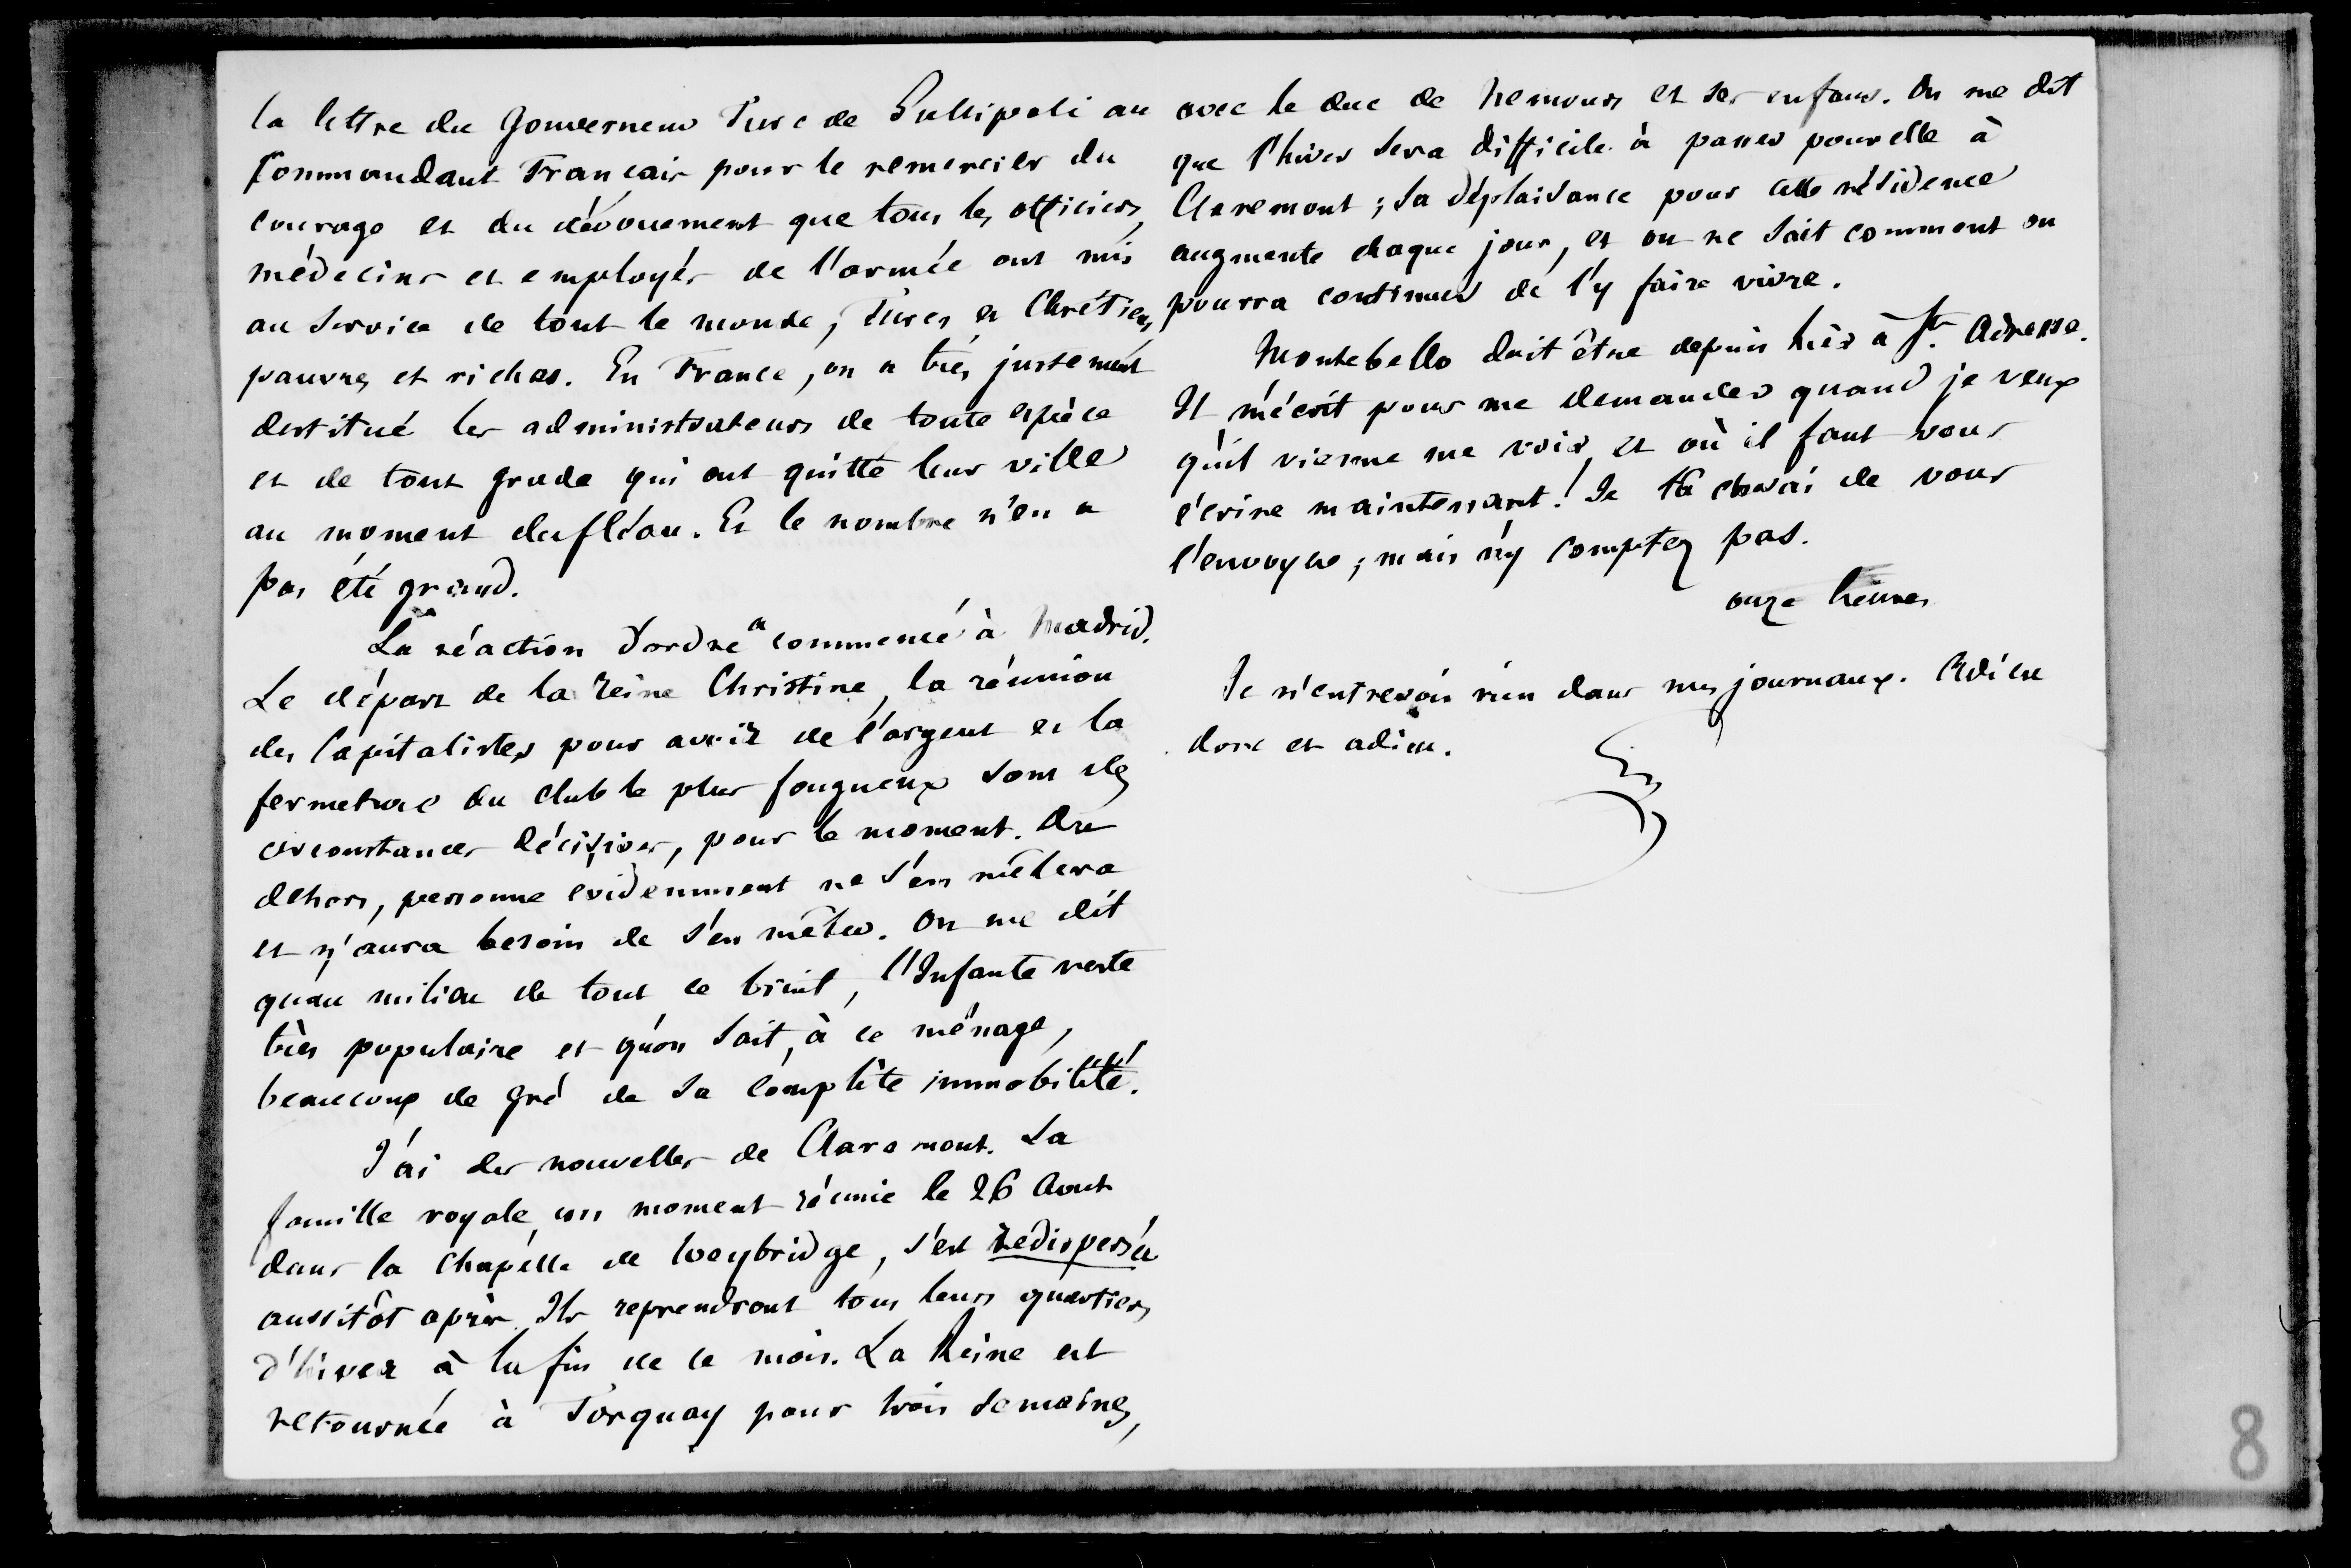 la lettre du Gouverneur Turc de Gallipoli au
Commandant Français pour le remercier du
courage et du dévouement que tous les officiers,
médecins et employés de l'armée ont mis
au service de tout le monde, Turcs et Chrétiens,
pauvres et riches. En France, on a très justement
destitué les administrateurs de toute espèce
et de tout grade qui ont quitté leur ville
au moment du fléau. Et le nombre n'en a
pas été grand.
La réaction d'ordre a commencé à Madrid.
Le départ de la Reine Christine, la réunion
des Capitalistes pour avoir de l'argent et la
fermeture du club le plus fougueux sont des
circonstances décisives, pour le moment. Du
dehors, personne évidemment ne s'en mêlera
et n'aura besoin de s'en mêler. On me dit
qu'au milieu de tout ce bruit, l'Infante reste
très populaire et qu'on sait, à ce ménage,
beaucoup de gré de sa complète immobilité.
J'ai des nouvelles de Claremont. La
famille royale, un moment réunie le 26 Aout
dans la Chapelle de Weybridge, s'est redispersée
aussitôt après. Ils reprendront tous leurs quartiers
d'hiver à la fin de ce mois. La Reine est
retournée à Torquay pour trois semaines,
avec le duc de Nemours et ses enfans. On me dit
que l'hiver sera difficile à passer pour elle à
Claremont ; sa déplaisance pour cette résidence
augmente chaque jour, et on ne sait comment on
pourra continuer de l'y faire vivre.
Montebello doit être depuis hier à Ste Adresse.
Il m'écrit pour me demander quand je veux
qu'il vienne me voir, et où il faut vous
écrire maintenant. Je tâcherai de vous
l'envoyer ; mais n'y comptez pas.
onze heures
Je n'entrevois rien dans mes journaux. Adieu
donc et adieu.
G
8